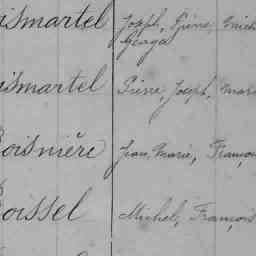 ismartel Joseph, Pierre, Mich
George
ismartel Pierre, Joseph, Mar
oisnière Jean, Marie, Françoi
oissel Michel, François